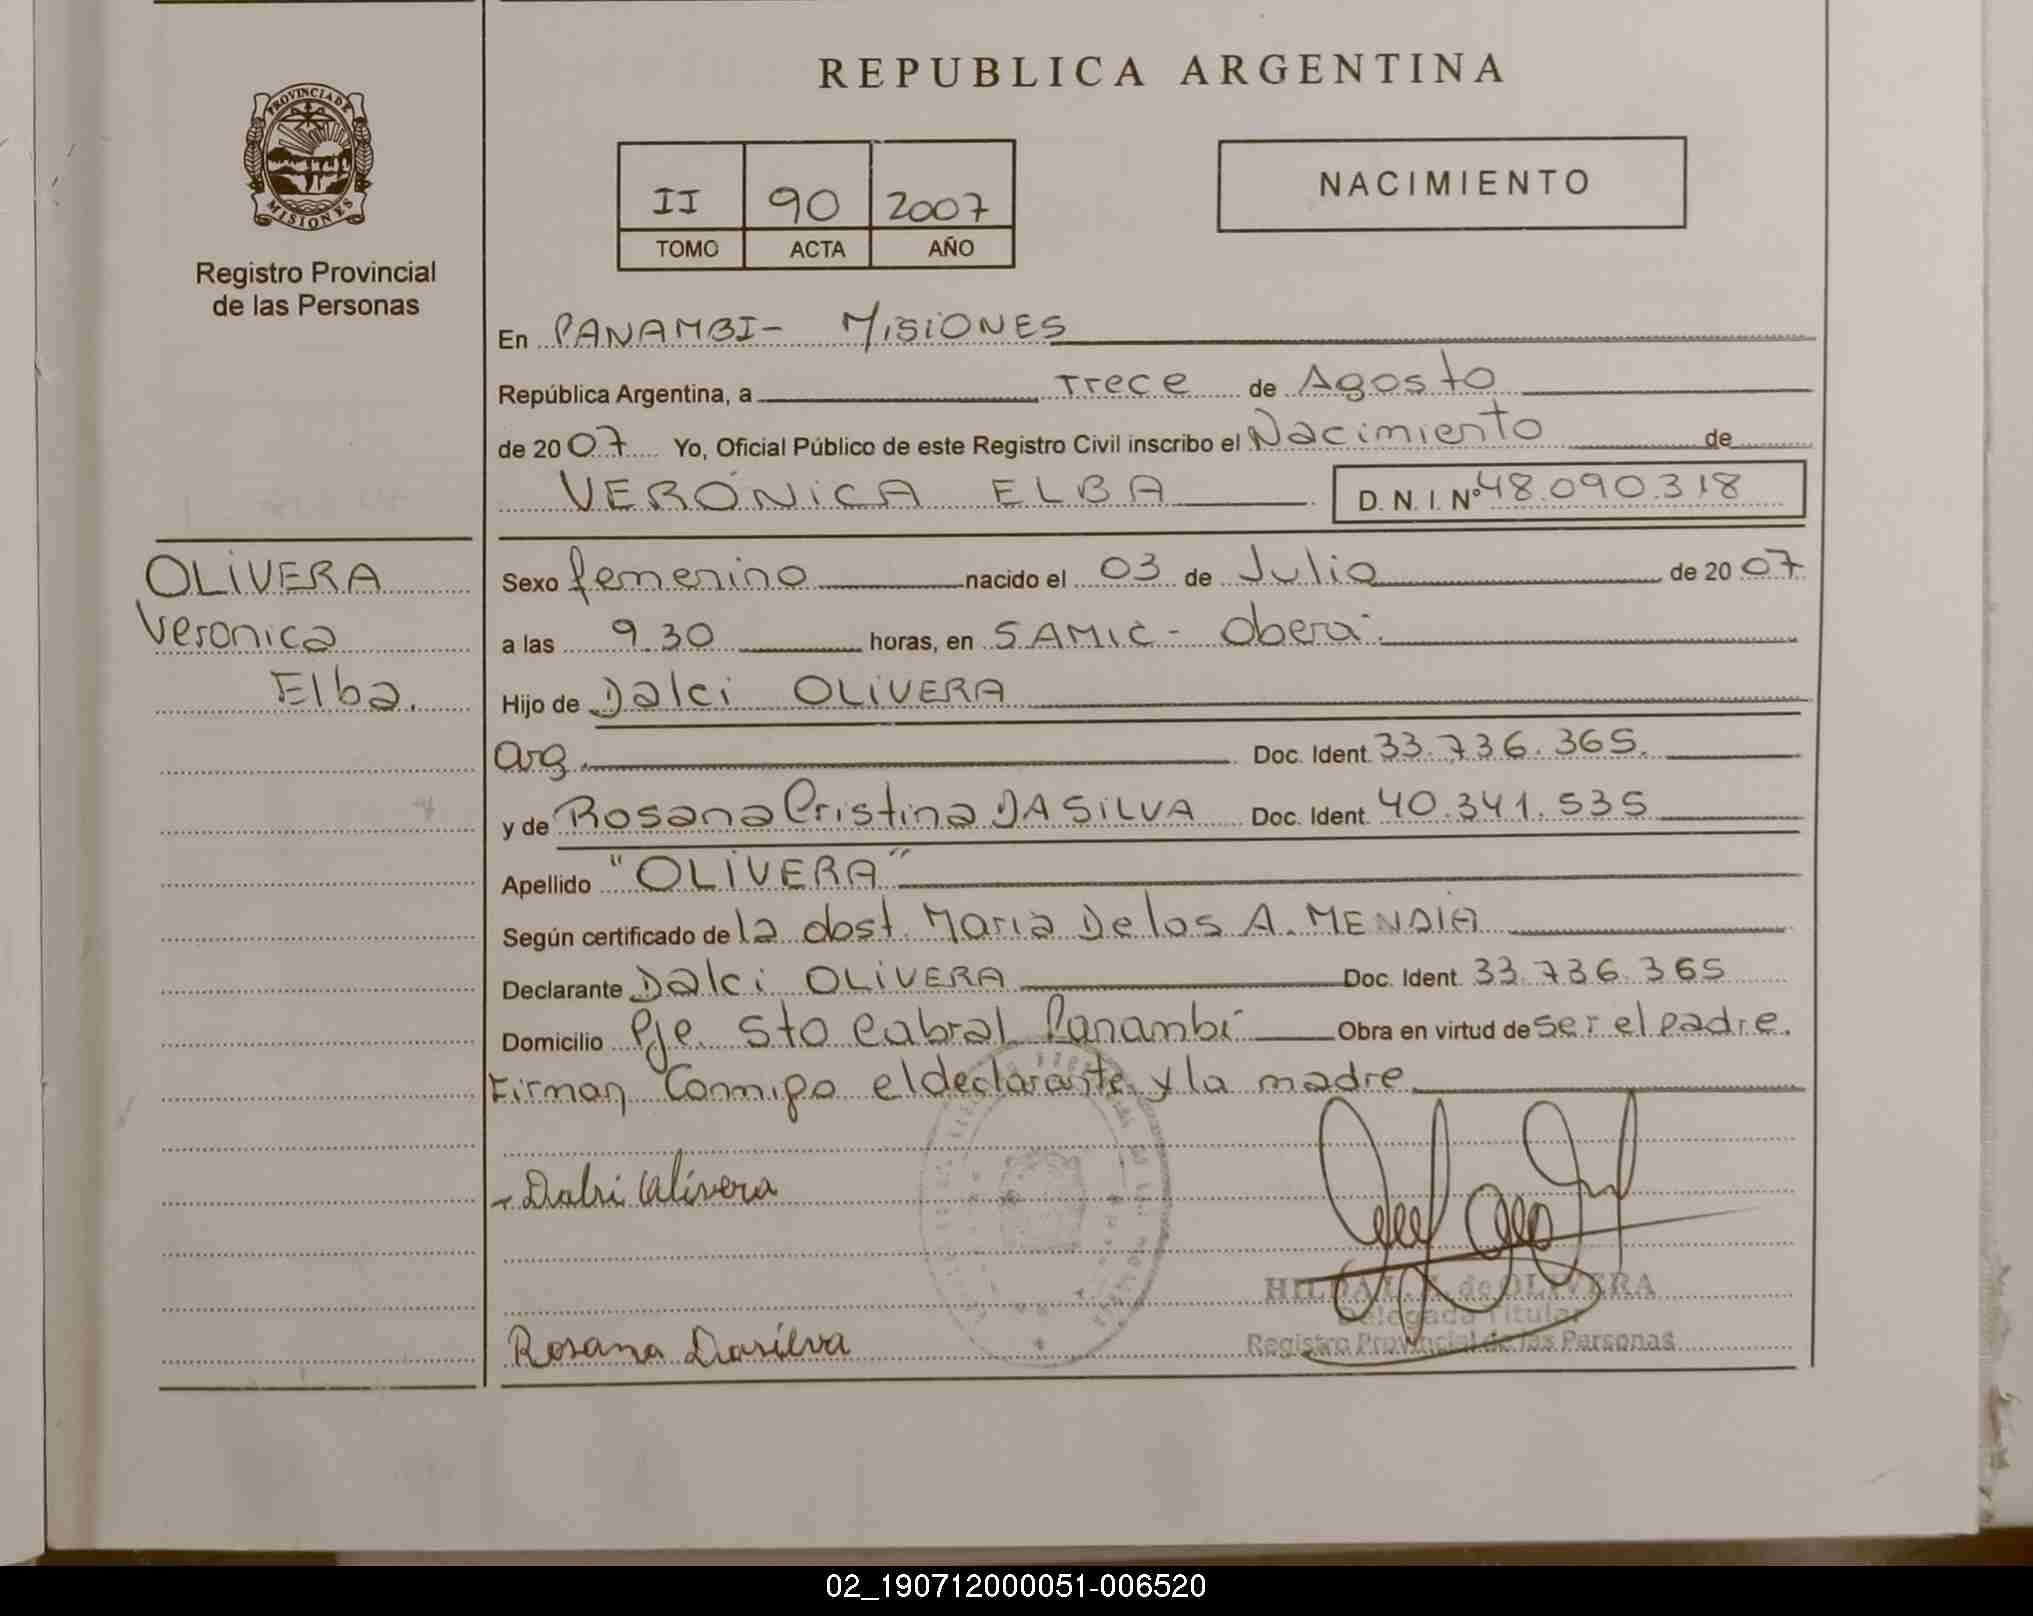 REPUBLICA ARGENTINA
PROVINCIA DE
MISIONES
Registro Provincial
de las Personas
II 90 2007
TOMO ACTA AÑO
NACIMIENTO
En PANAMBI- MISIONES
República Argentina, a trece de Agosto
de 2007 Yo, Oficial Público de este Registro Civil inscribo el Nacimiento de
VERÓNICA ELBA D. N. I. Nº 48.090.318
OLIVERA
Veronica
Elba.
Sexo femenino nacido el 03 de Julio de 2007
a las 9.30 horas, en SAMIC - Oberá.
Hijo de Dalci OLIVERA
arg. Doc. Ident. 33.736.365.
y de Rosana Cristina DA SILVA Doc. Ident. 40.341.535
Apellido "OLIVERA"
Según certificado de la obst. Maria De los A. MENDIA
Declarante Dalci OLIVERA Doc. Ident. 33.736.365
Domicilio Pje. Sto Cabral Panambí Obra en virtud de ser el padre.
Firman Conmigo el declarante y la madre
- Dalci Olivera
HILDA de OLIVERA
Delegada Titular
Registro Provincial de las Personas
Rosana Dasilva
02_190712000051-006520